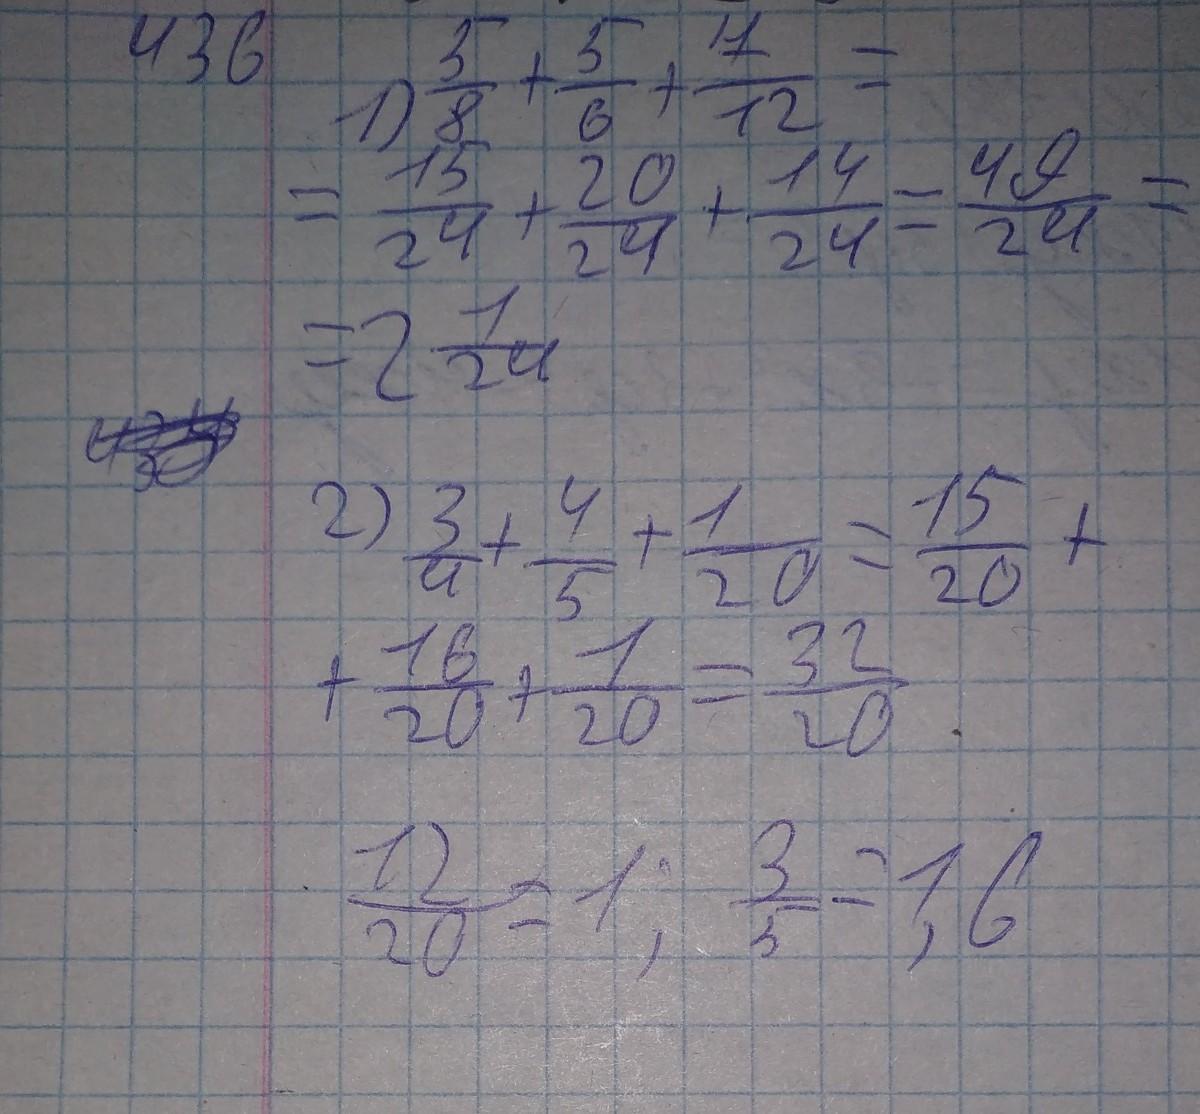 436
1) 5/8 + 5/6 + 7/12 =
= 15/24 + 20/24 + 14/24 = 49/24 =
= 2 1/24
2) 3/4 + 4/5 + 1/20 = 15/20 +
+ 16/20 + 1/20 = 32/20
12/20 = 1; 3/5 = 1,6